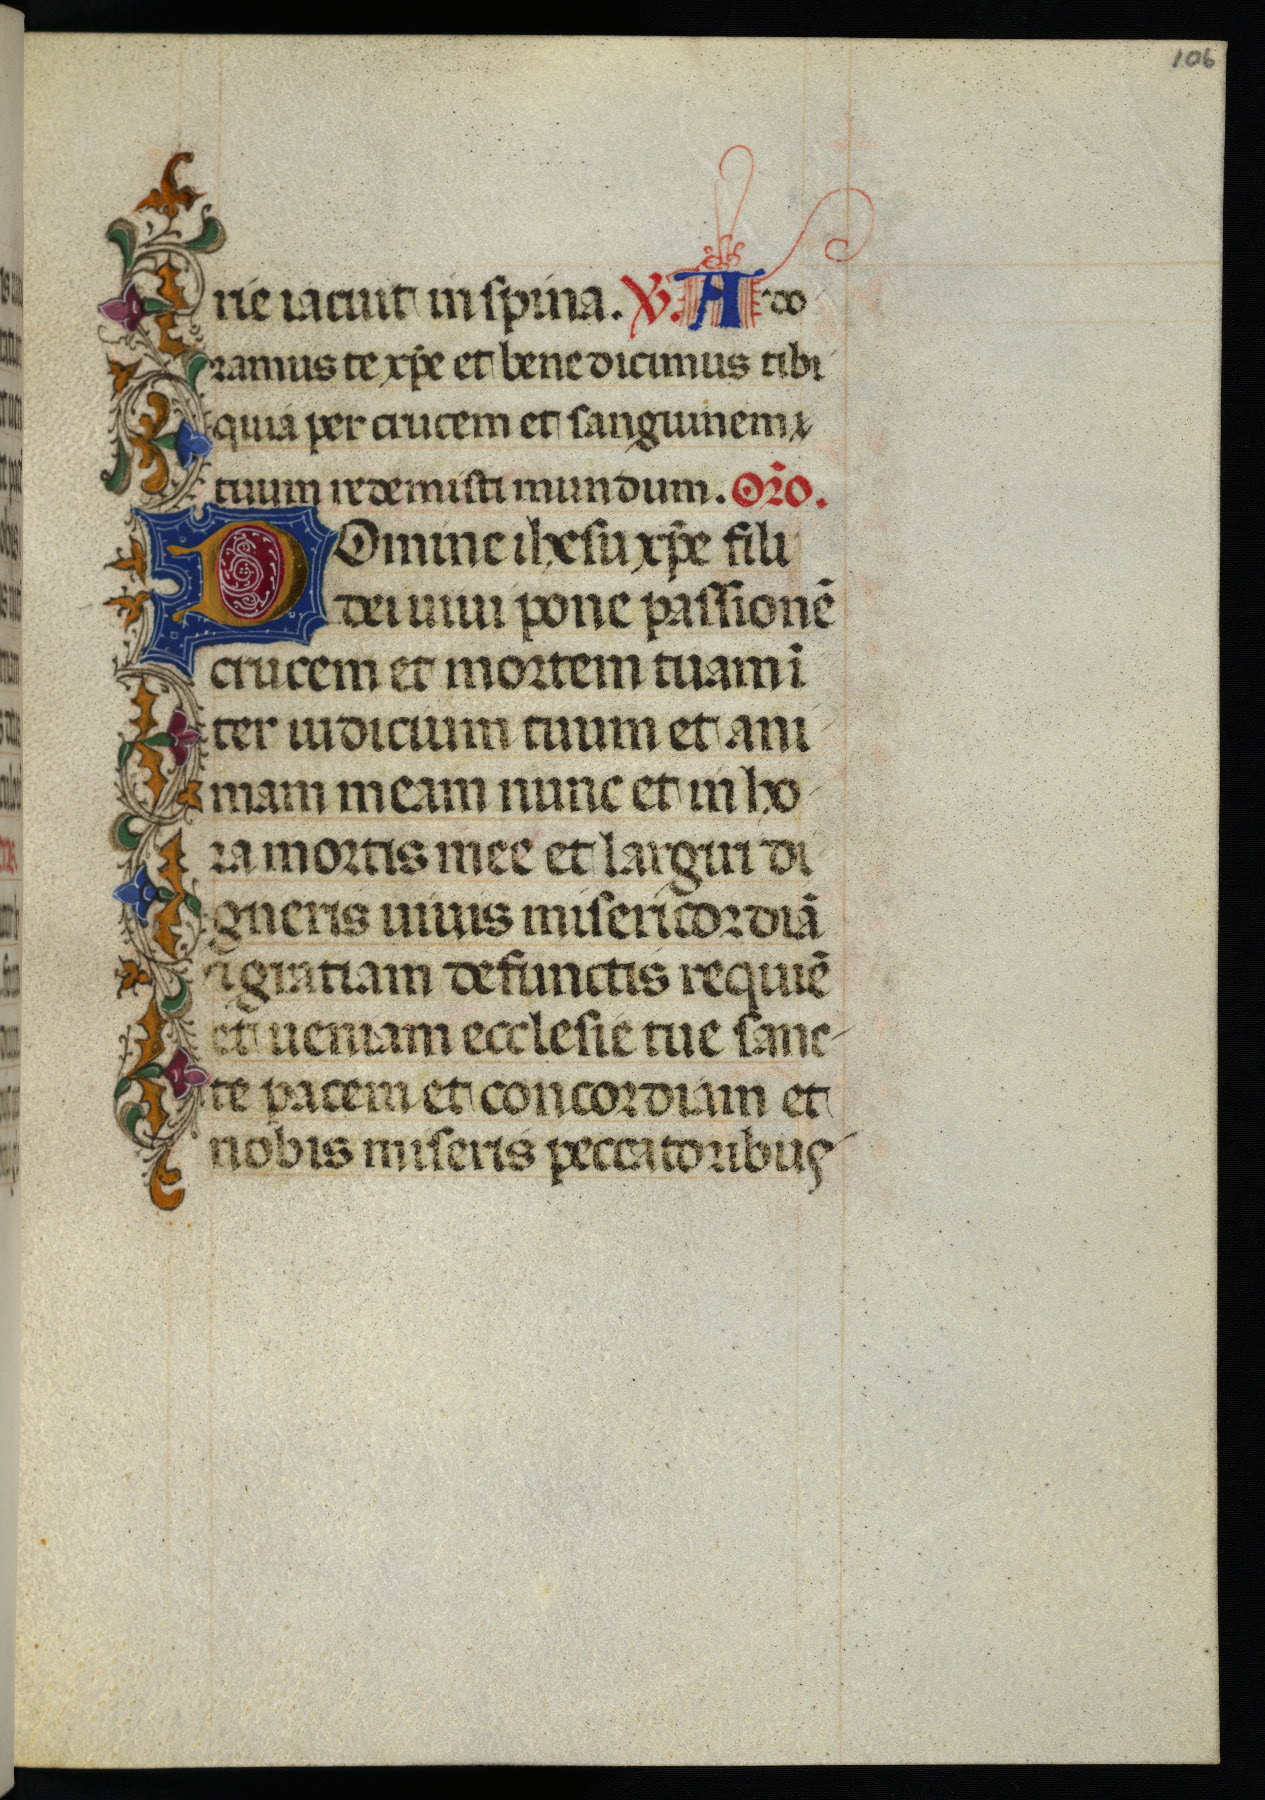 106
rie iacuit in spina. V. Ado
ramus te xp̄e et benedicimus tibi
quia per crucem et sanguinem
tuum redemisti mundum. Or̄o.
Domine ihesu xp̄e fili
dei uiui pone passionē
crucem et mortem tuam ī
ter iudicium tuum et ani
mam meam nunc et in ho
ra mortis mee et largiri di
gneris uiuis misericordiā
ī gratiam defunctis requiē
et ueniam ecclesie tue sanc
te pacem et concordiam et
nobis miseris peccatoribus